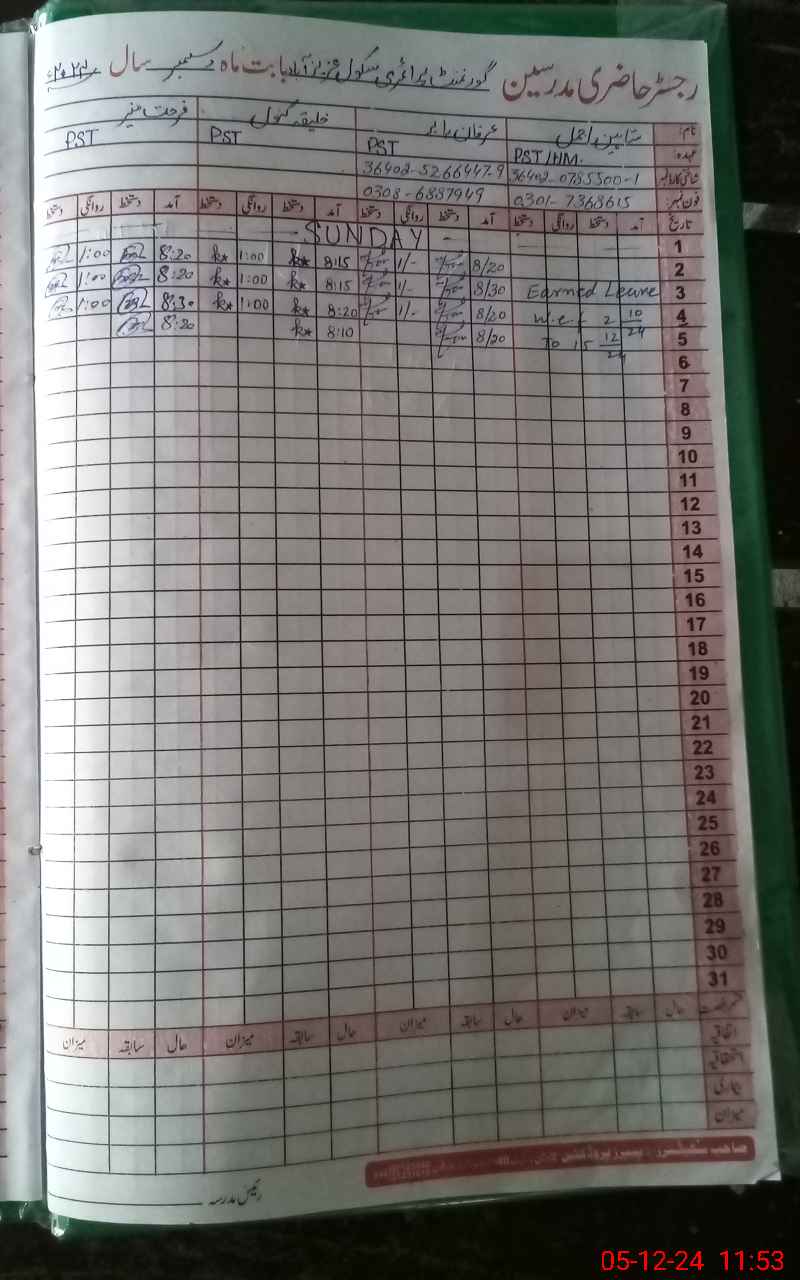 رجسٹر حاضری مدرسین گورنمنٹ پرائمری سکول عزیز آباد بابت ماہ دسمبر سال ۲۰۲۴
نام: عرفان فرحت منیر
عہدہ: PST/HM. PST PST PST
شناختی کارڈ نمبر 36402-0785500-1 36402-5266447-9
فون نمبر: 0301-7368615 0308-6887949
تاریخ آمد دستخط روانگی دستخط آمد دستخط روانگی دستخط آمد دستخط روانگی دستخط آمد دستخط روانگی دستخط
1 - SUNDAY -
2 8/20 1/- 8:15 k 1:00 k 8:20 1:00
3 Earned Leave 8/30 1/- 8:15 k 1:00 k 8:20 1:00
4 w.e.f 2 10/24 8/20 1/- 8:20 k 1:00 k 8:30 1:00
5 To 15 12/24 8/20 8:10 k 8:20
6
7
8
9
10
11
12
13
14
15
16
17
18
19
20
21
22
23
24
25
26
27
28
29
30
31
حال سابقہ میزان حال سابقہ میزان حال سابقہ میزان حال سابقہ میزان
اتفاقیہ
استحقاقیہ
بیماری
میزان
رئیس مدرسہ
05-12-24 11:53